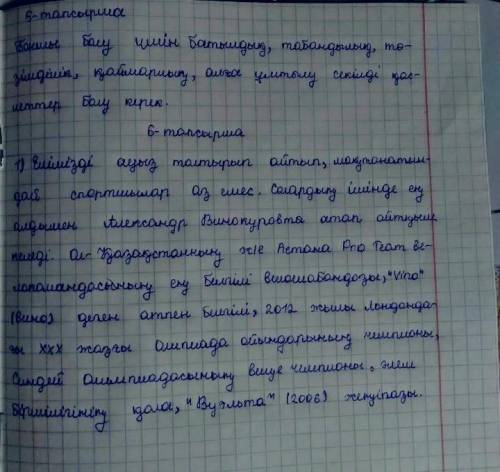 5-тапсырма
Батыл болу үшін батылдық, табандылық, тө-
зімділік, қайтарлық, алға ұмтылу секілді қас-
иеттер болу керек.
6-тапсырма
1) Елімізді ауыз толтырып айтып, мақтанатын-
дай спортшылар аз емес. Солардың ішінде ең
алдымен Александр Винокуровты атап айтқым
келеді. Ол- Қазақстанның және Астана Pro Team ве-
локомандасының ең белгілі велошабандозы, "Vino"
(вино) деген атпен белгілі, 2012 жылы Лондонда-
ғы XXX жазғы олипиада ойындарының чемпионы,
Сидней олимпиадасының вице чемпионы, әлем
біріншілігінің қола, "Вуэльта" (2006) жеңімпазы.